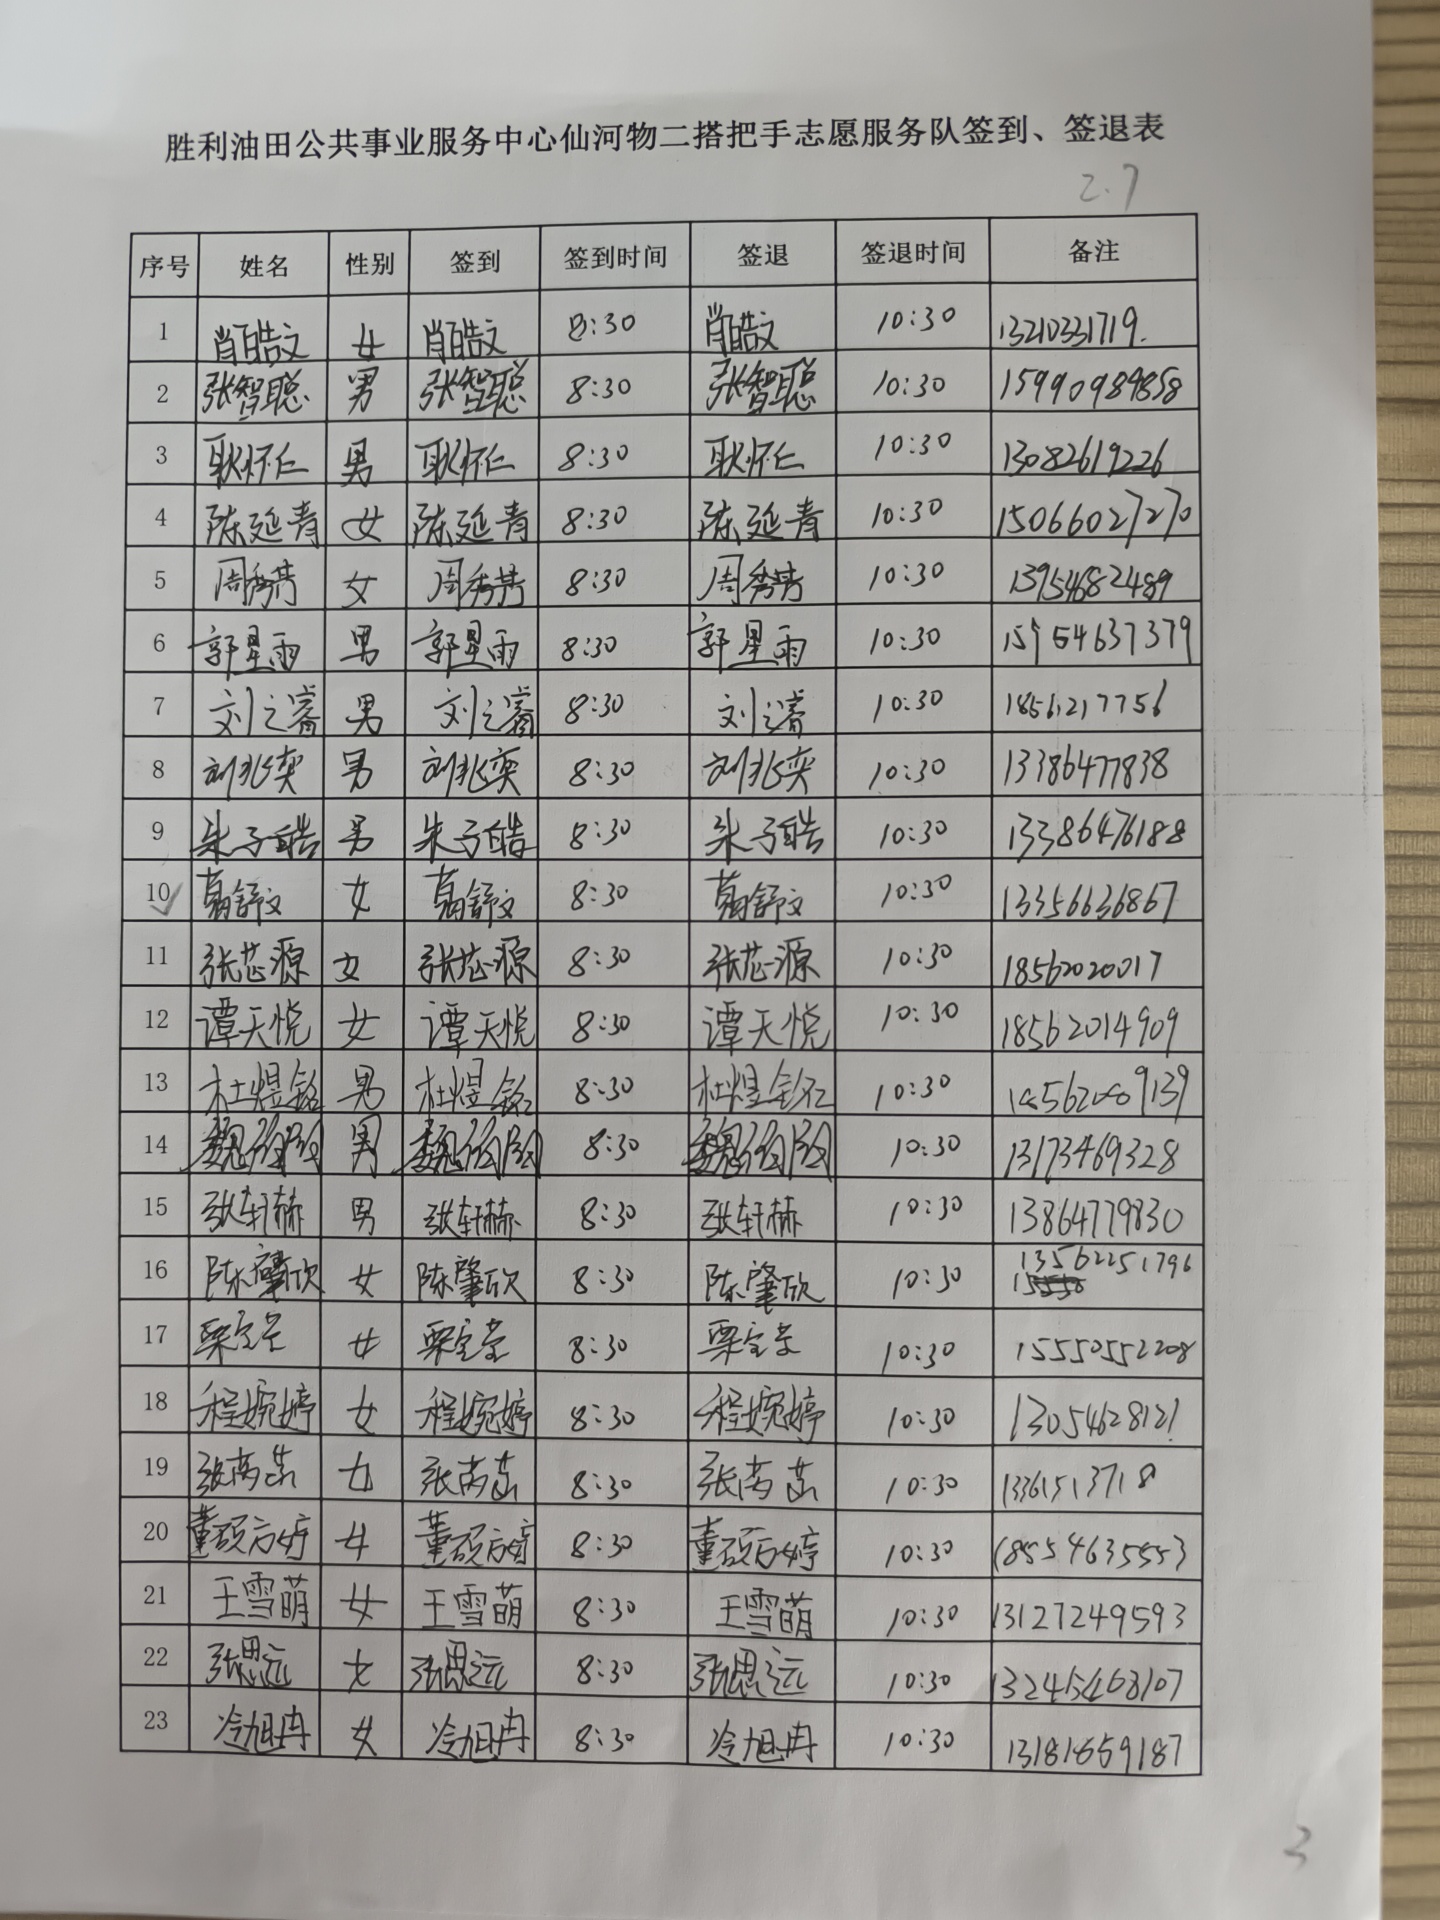 胜利油田公共事业服务中心仙河物二搭把手志愿服务队签到、签退表
2.7
序号 姓名 性别 签到 签到时间 签退 签退时间 备注
1 肖皓文 女 肖皓文 8:30 肖皓文 10:30 13210331719.
2 张智聪 男 张智聪 8:30 张智聪 10:30 15990989858
3 耿怀仁 男 耿怀仁 8:30 耿怀仁 10:30 13082619226
4 陈延青 女 陈延青 8:30 陈延青 10:30 15066027270
5 周秀芳 女 周秀芳 8:30 周秀芳 10:30 13954682489
6 郭星雨 男 郭星雨 8:30 郭星雨 10:30 15954637379
7 刘之睿 男 刘之睿 8:30 刘之睿 10:30 18561217756
8 刘兆奕 男 刘兆奕 8:30 刘兆奕 10:30 13386477838
9 朱子皓 男 朱子皓 8:30 朱子皓 10:30 13386476188
10 葛舒文 女 葛舒文 8:30 葛舒文 10:30 13356636867
11 张芯源 女 张芯源 8:30 张芯源 10:30 18562020017
12 谭天悦 女 谭天悦 8:30 谭天悦 10:30 18562014909
13 杜煜铭 男 杜煜铭 8:30 杜煜铭 10:30
14 男 8:30 10:30 13173469328
15 张轩赫 男 张轩赫 8:30 张轩赫 10:30 13864779830
16 陈肇欣 女 陈肇欣 8:30 陈肇欣 10:30 13562251796
17 栗宝莹 女 栗宝莹 8:30 栗宝莹 10:30 15550552208
18 程婉婷 女 程婉婷 8:30 程婉婷 10:30 13054628121
19 张芮菡 女 张芮菡 8:30 张芮菡 10:30 13361513718
20 董硕方婷 女 董硕方婷 8:30 董硕方婷 10:30 18554635553
21 王雪萌 女 王雪萌 8:30 王雪萌 10:30 13127249593
22 张思远 女 张思远 8:30 张思远 10:30 13245468107
23 冷旭冉 女 冷旭冉 8:30 冷旭冉 10:30 13181859187
3